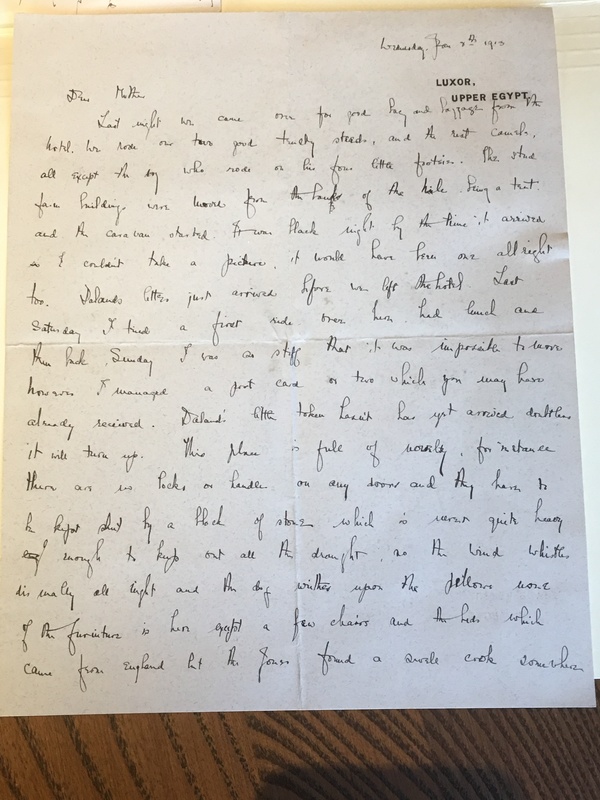 Wednesday. Jan 8th 1913
LUXOR,
UPPER EGYPT.
Dear Mother
Last night we came over for good bag and baggage from the
hotel. We rode our two good trusty steeds, and the rest camels,
all except the boy who rode on his four little footsies. The
farm buildings were moved from the banks of the Nile being a tent
and the caravan started. It was black night by the time it arrived
so I couldn't take a picture, it would have been one all right
too. Daland's letters just arrived before we left the hotel. Last
Saturday I tried a first ride over here had lunch and
then back. Sunday I was so stiff that it was impossible to move
however I managed a post card or two which you may have
already received. Daland's little token hasn't has yet arrived doubtless
it will turn up. This place is full of novelty, for instance
there are no locks or handles on any doors and they have to
be kept shut by a block of stone which is never quite heavy
enough to keep out all the draught, so the wind whistles
dismally all night and the upon the pillows none
of the furniture is here except a few chairs and the beds which
came from England but the Jones found a swell cook somewhere